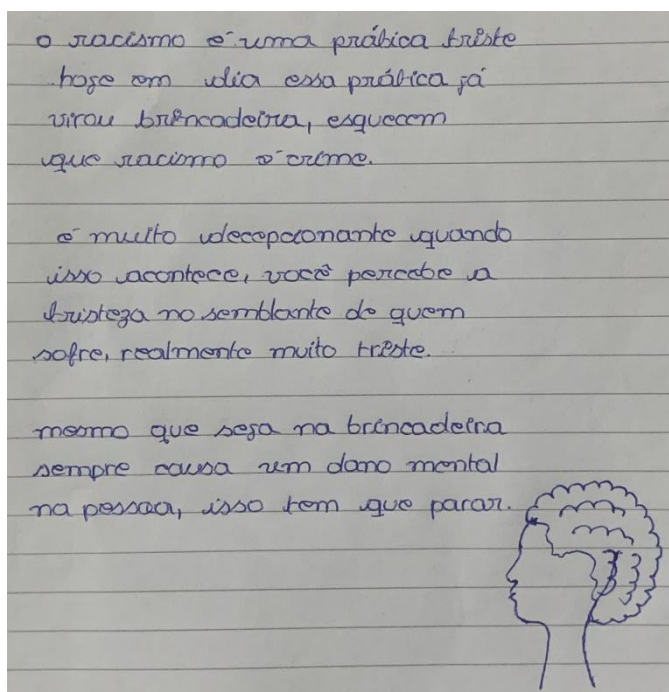 o racismo é uma prática triste
hoje em dia essa prática já
virou brincadeira, esquecem
que racismo é crime.
é muito decepcionante quando
isso acontece, você percebe a
tristeza no semblante de quem
sofre, realmente muito triste.
mesmo que seja na brincadeira
sempre causa um dano mental
na pessoa, isso tem que parar.